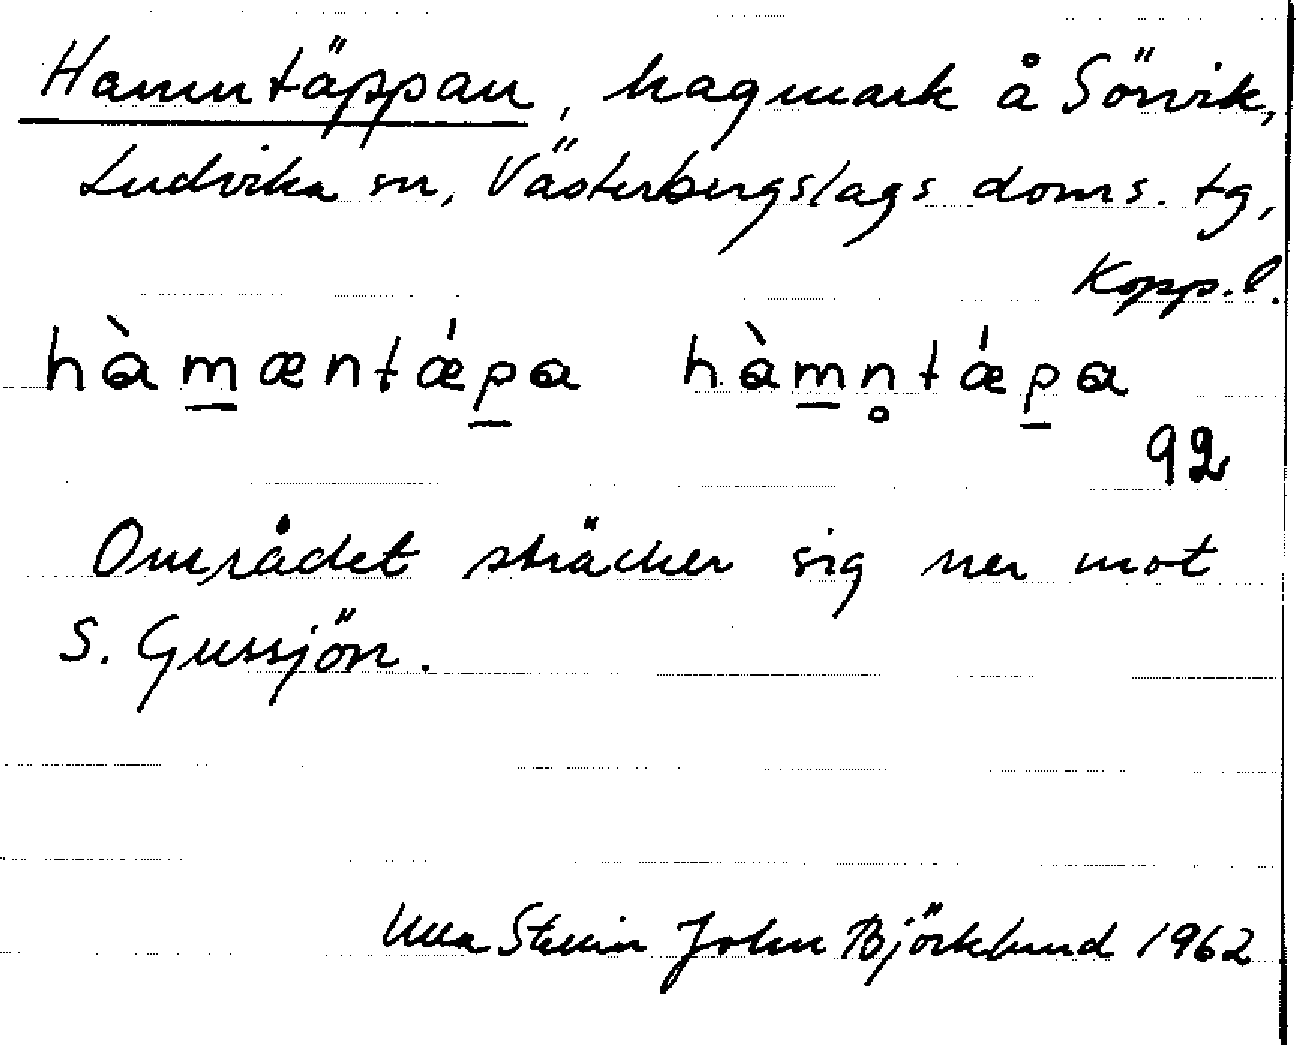 Hamntäppan, hagmark å Sörvik,
Ludvika sn, Västerbergslags doms. tg,
Kopp. l.
hàm̲æntǽp̲a hàm̲n̥tǽp̲a
92
Området sträcker sig ner mot
S. Gussjön.
Ulla Stenin John Björklund 1962